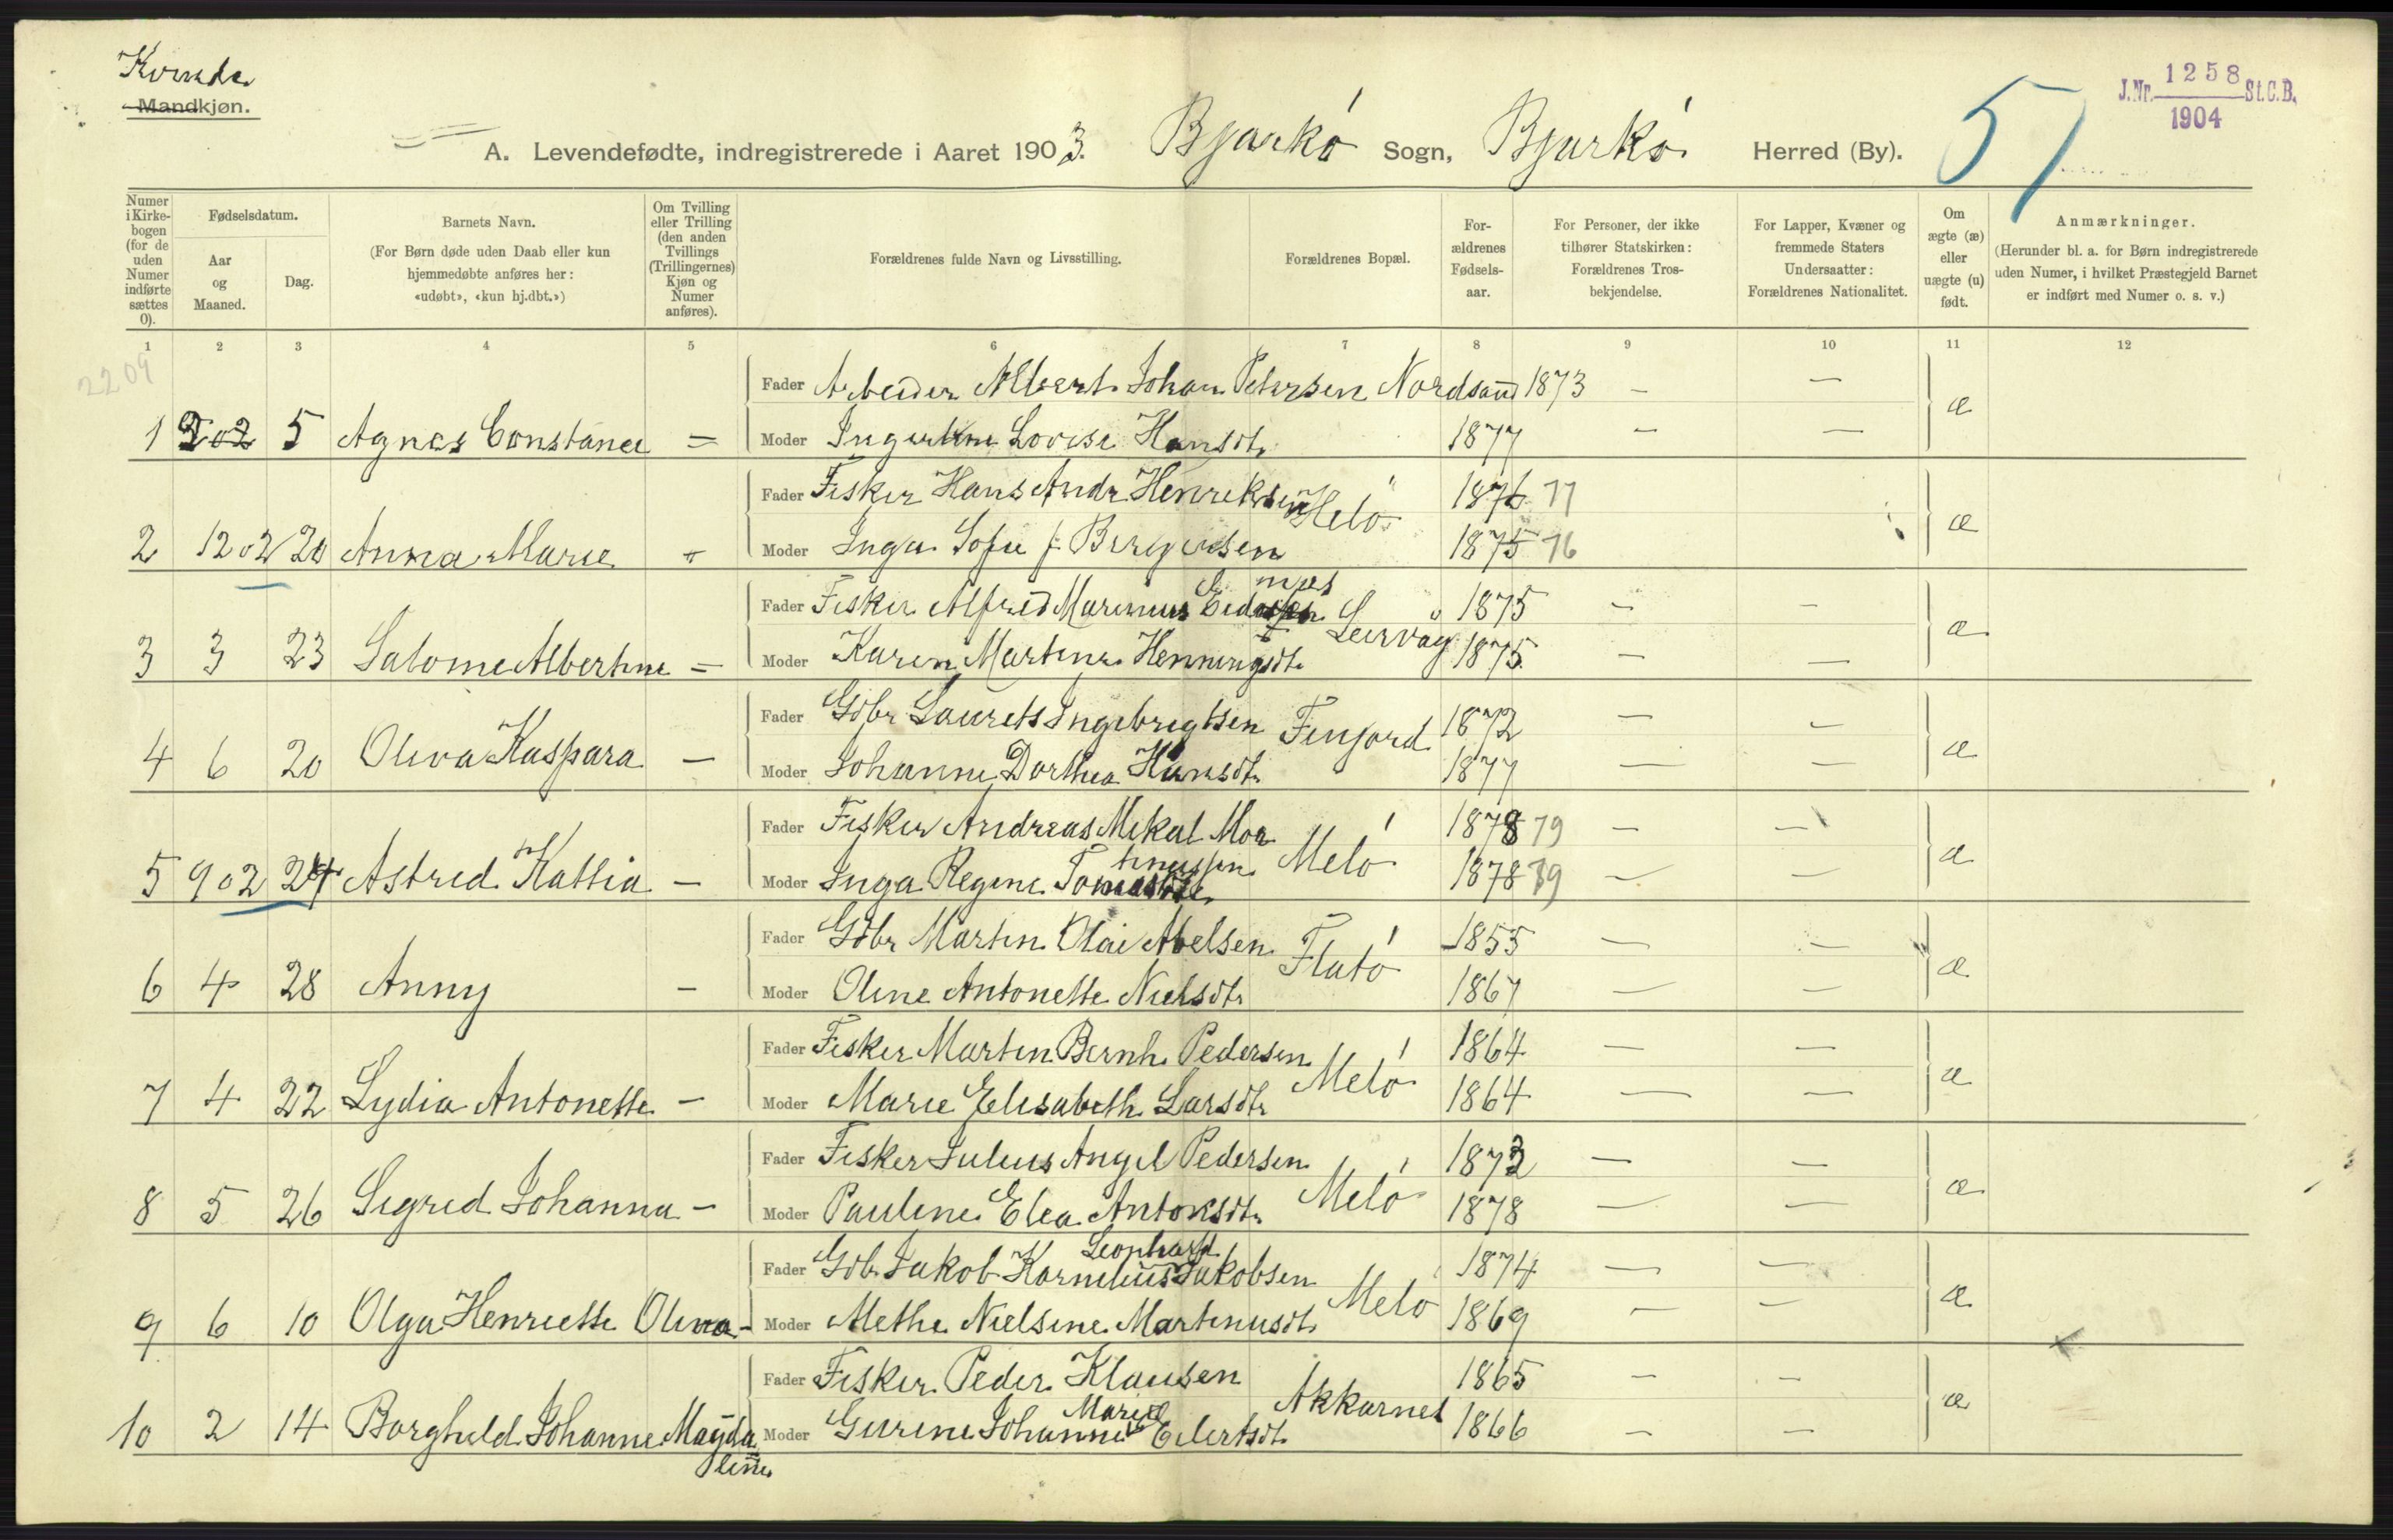 Kvinde
Mandkjøn.
J.Nr. 1258 St.C.B.
1904
A. Levendefødte, indregistrerede i Aaret 1903. Bjarkö Sogn, Bjarkö Herred (By).
51
Numer i Kirkebogen (for de uden Numer indførte sættes 0).
Fødselsdatum.
Aar og Maaned.
Dag.
Barnets Navn.
(For Børn døde uden Daab eller kun hjemmedøbte anføres her: «udøbt», «kun hj.dbt.»)
Om Tvilling eller Trilling (den anden Tvillings (Trillingernes) Kjøn og Numer anføres).
Forældrenes fulde Navn og Livsstilling.
Forældrenes Bopæl.
Forældrenes Fødselsaar.
For Personer, der ikke tilhører Statskirken: Forældrenes Trosbekjendelse.
For Lapper, Kvæner og fremmede Staters Undersaatter: Forældrenes Nationalitet.
Om ægte (æ) eller uægte (u) født.
Anmærkninger.
(Herunder bl. a. for Børn indregistrerede uden Numer, i hvilket Præstegjeld Barnet er indført med Numer o. s. v.)
1 2 3 4 5 6 7 8 9 10 11 12
2209
Fader Arbeider Albert Johan Petersen Nordsand 1873 — —
1 5 Agnes Constance = Moder Ingertine Lovise Hansdt. 1877 — — æ
Fader Fisker Hans Andr Henriksen Melö 1876 77
2 12 02 20 Anna Marie " Moder Inga Sofie f. Birgersen 1875 76 æ
Fader Fisker Alfred Marinius Leirvåg 1875 — —
3 3 23 Salome Albertine = Moder Karen Martine Henningsdt. 1875 — — æ
Fader Gdbr Laurits Ingebrigtsen Finjord 1872 — —
4 6 20 Oliva Kaspara — Moder Johanne Dorthea Hansdt. 1877 — — æ
Fader Fisker Andreas Mikal Moa Melö 1878 79 — —
5 9 02 24 Astrid Kattia — Moder Inga Regine 1878 79 — — æ
Fader Gdbr Martin Olai Abelsen Flatö 1855 — —
6 4 28 Anny — Moder Oline Antonette Nielsdtr 1867 — — æ
Fader Fisker Martin Bernh. Pedersen Melö 1864 — —
7 4 22 Lydia Antonette — Moder Marie Elisabeth Larsdtr 1864 — — æ
Fader Fisker Julius Angel Pedersen Melö 1872 — —
8 5 26 Sigrid Johanna — Moder Pauline Elea Antonsdt. 1878 — — æ
Fader Gdb. Jakob Kornelius Leonhard Jakobsen Melö 1874 — —
9 6 10 Olga Henriette Oliva — Moder Methe Nielsine Martinusdt. 1869 — — æ
Fader Fisker Peder Klausen Akkarnes 1865 — —
10 2 14 Borghild Johanne Magdaline Moder Gurine Johanne Marie Eilertsdt. 1866 — — æ